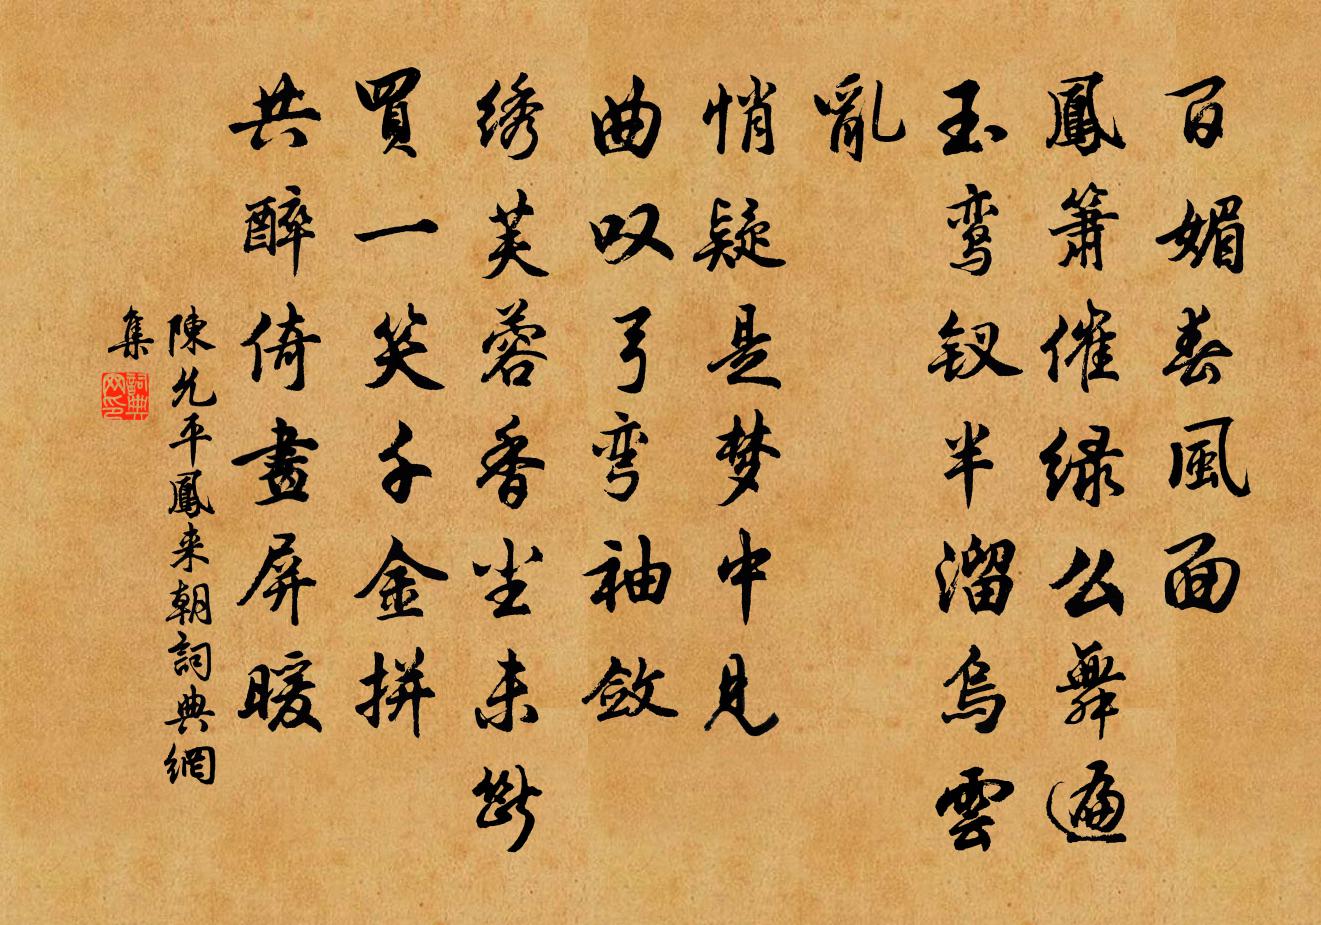 百媚春風面
鳳簫催绿么舞遍
玉鸾钗半溜烏雲
亂
悄疑是梦中見
曲叹弓弯袖斂
绣芙蓉香尘未斷
買一笑千金拼
共醉倚畫屏暖
陳允平鳳来朝詞典網
集
詞典
网印